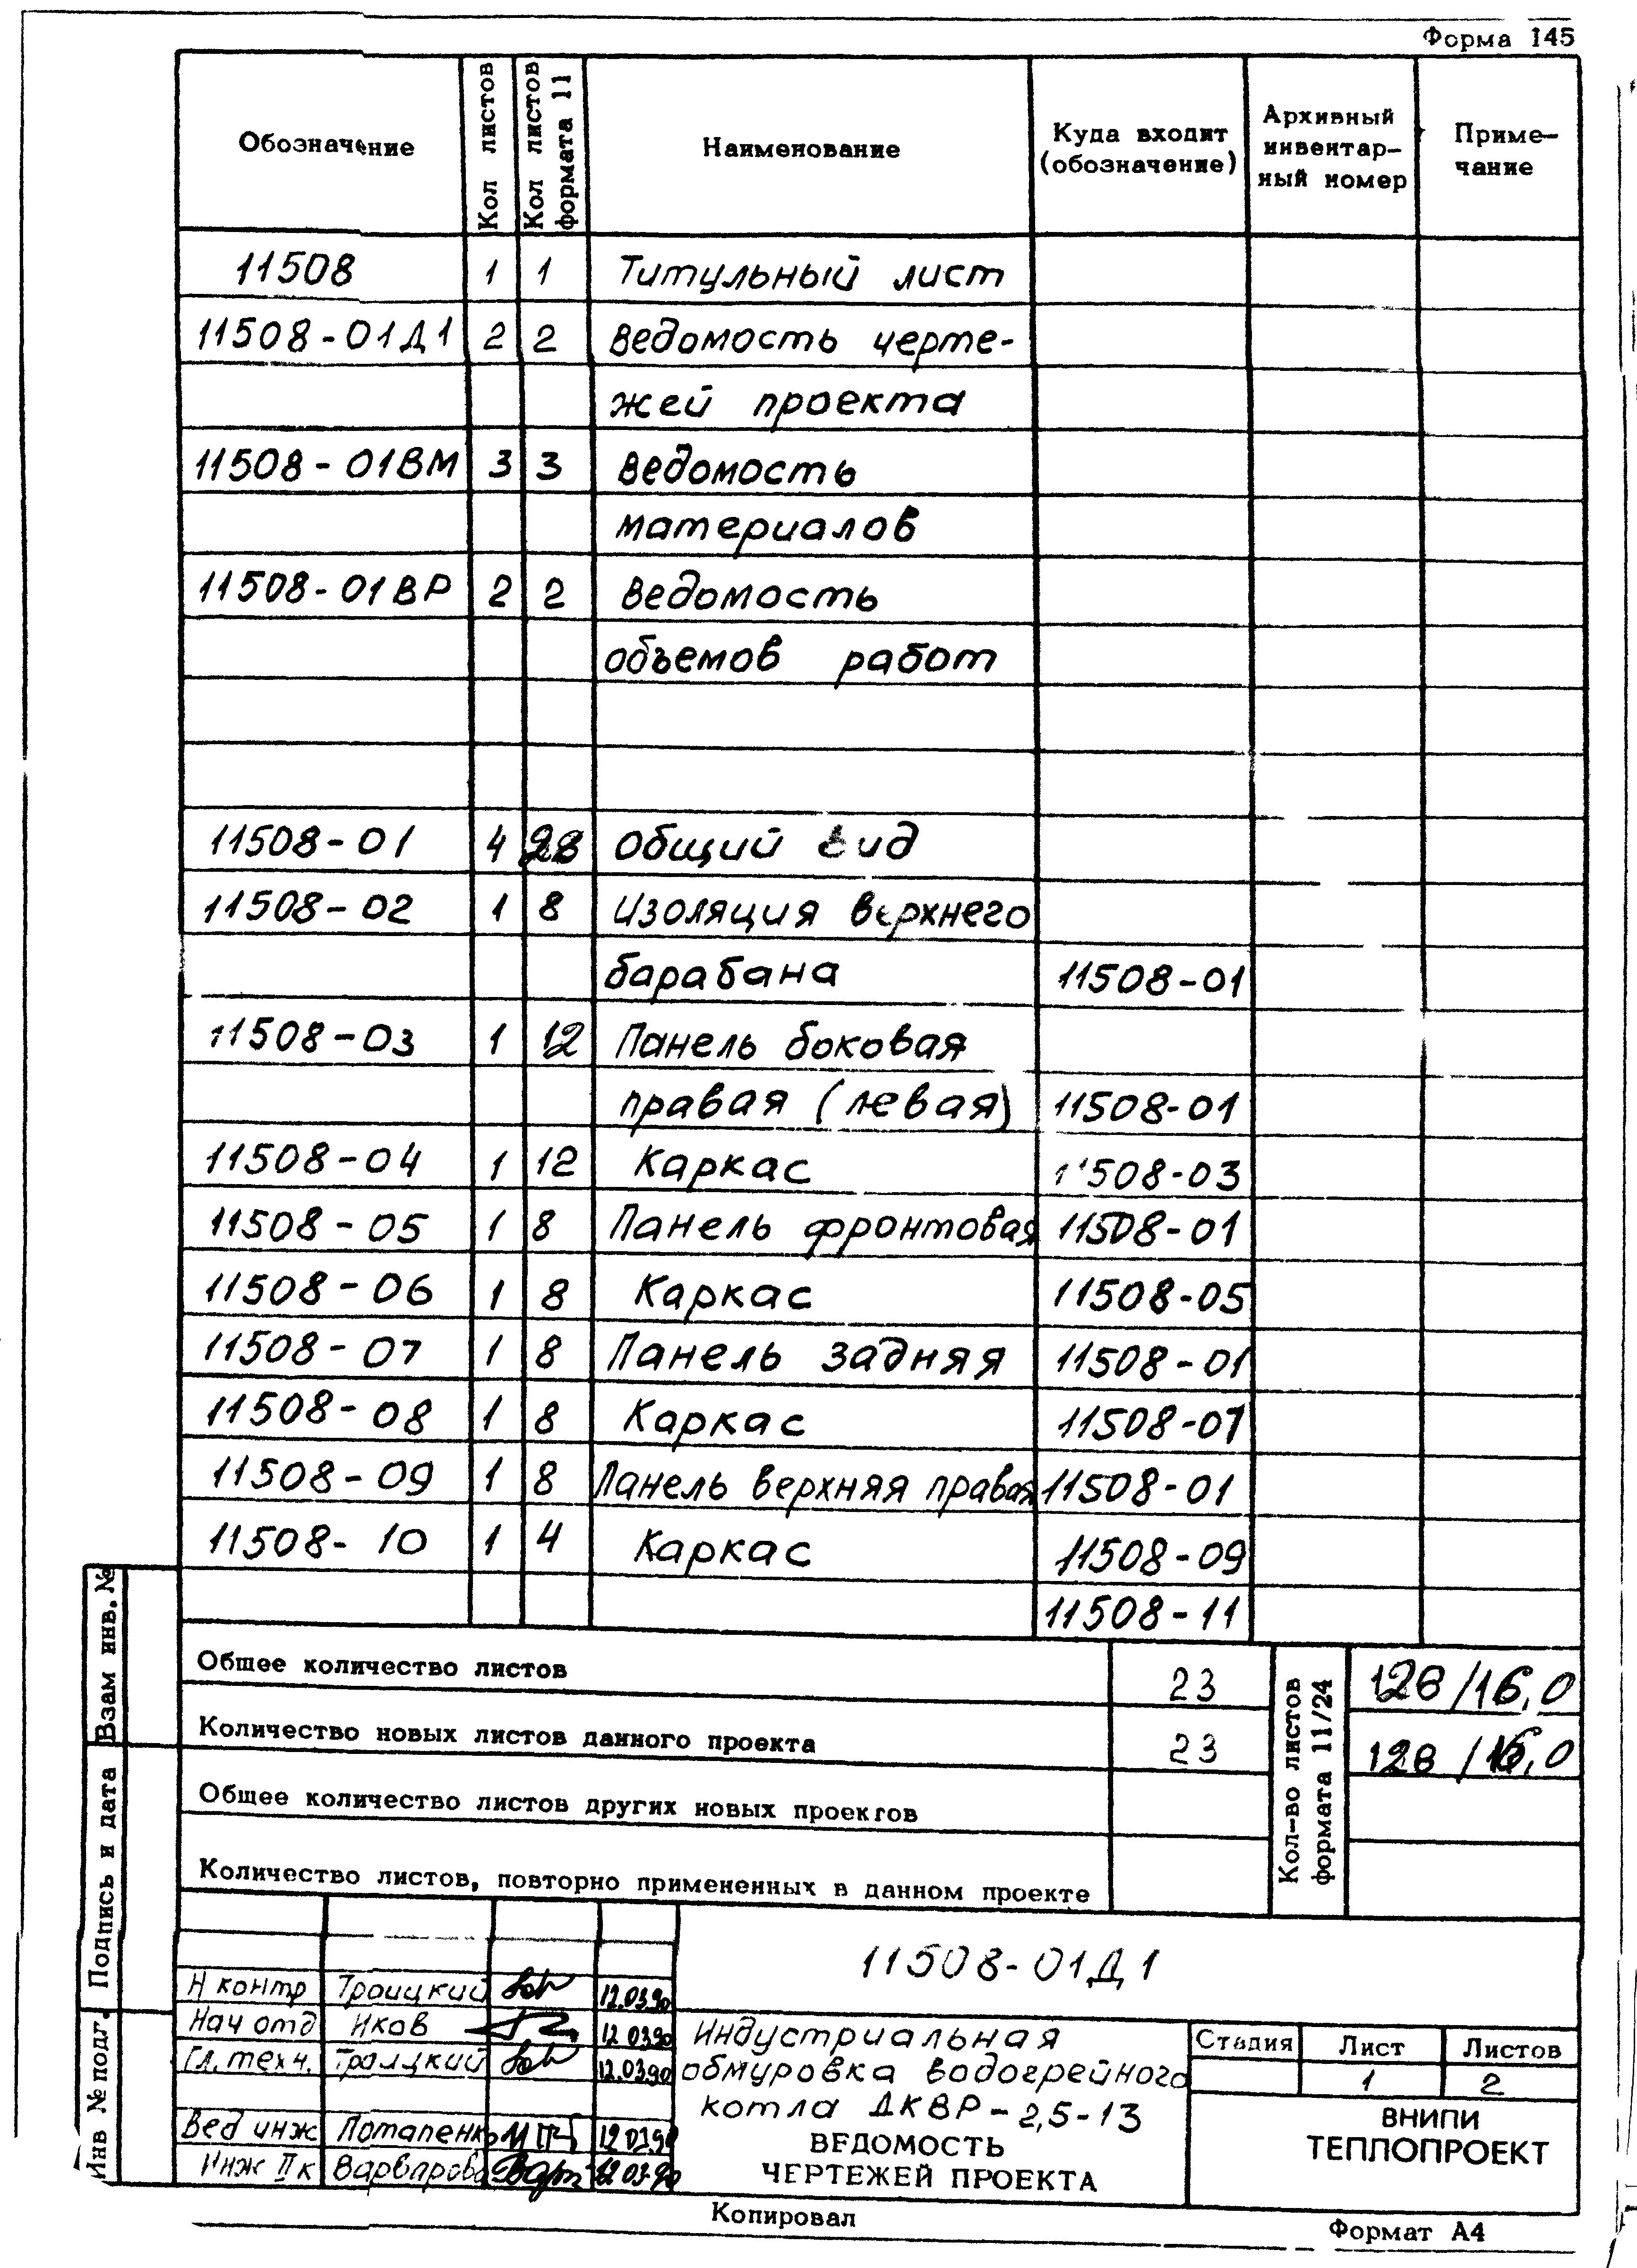 Форма 145
Обозначение
Кол листов
Кол листов формата 11
Наименование
Куда входит (обозначение)
Архивный инвентар- ный номер
Приме- чание
11508 1 1 Титульный лист
11508-01Д1 2 2 Ведомость черте-
жей проекта
11508-01ВМ 3 3 Ведомость
материалов
11508-01ВР 2 2 Ведомость
объемов работ
11508-01 4 28 Общий вид
11508-02 1 8 Изоляция верхнего
барабана 11508-01
11508-03 1 12 Панель боковая
правая (левая) 11508-01
11508-04 1 12 Каркас 11508-03
11508-05 1 8 Панель фронтовая 11508-01
11508-06 1 8 Каркас 11508-05
11508-07 1 8 Панель задняя 11508-01
11508-08 1 8 Каркас 11508-07
11508-09 1 8 Панель верхняя правая 11508-01
11508-10 1 4 Каркас 11508-09
11508-11
Общее количество листов 23
Количество новых листов данного проекта 23
Общее количество листов других новых проектов
Количество листов, повторно примененных в данном проекте
Кол-во листов формата 11/24
128/16,0
128/16,0
Взам инв. №
Подпись и дата
Инв № подл.
11508-01Д1
Н контр Троицкий 12.03.90
Нач отд Иков 12.03.90
Гл. техн. Троицкий 12.03.90
Вед инж Потапенко 12.03.90
Инж II к Варварова 12.03.90
Индустриальная
обмуровка водогрейного
котла ДКВР-2,5-13
ВЕДОМОСТЬ
ЧЕРТЕЖЕЙ ПРОЕКТА
Стадия Лист Листов
1 2
ВНИПИ
ТЕПЛОПРОЕКТ
Копировал
Формат А4